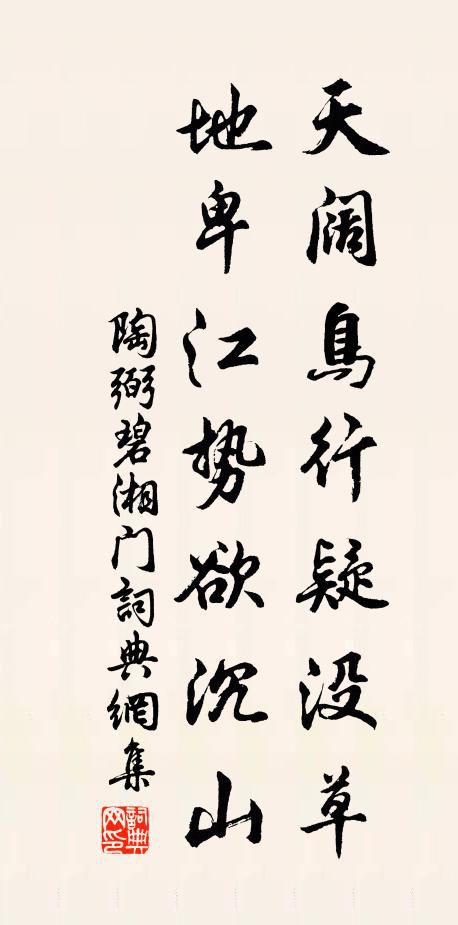 天阔鳥行疑没草
地卑江势欲沉山
陶弼碧湘门詞典網集
詞典
网印